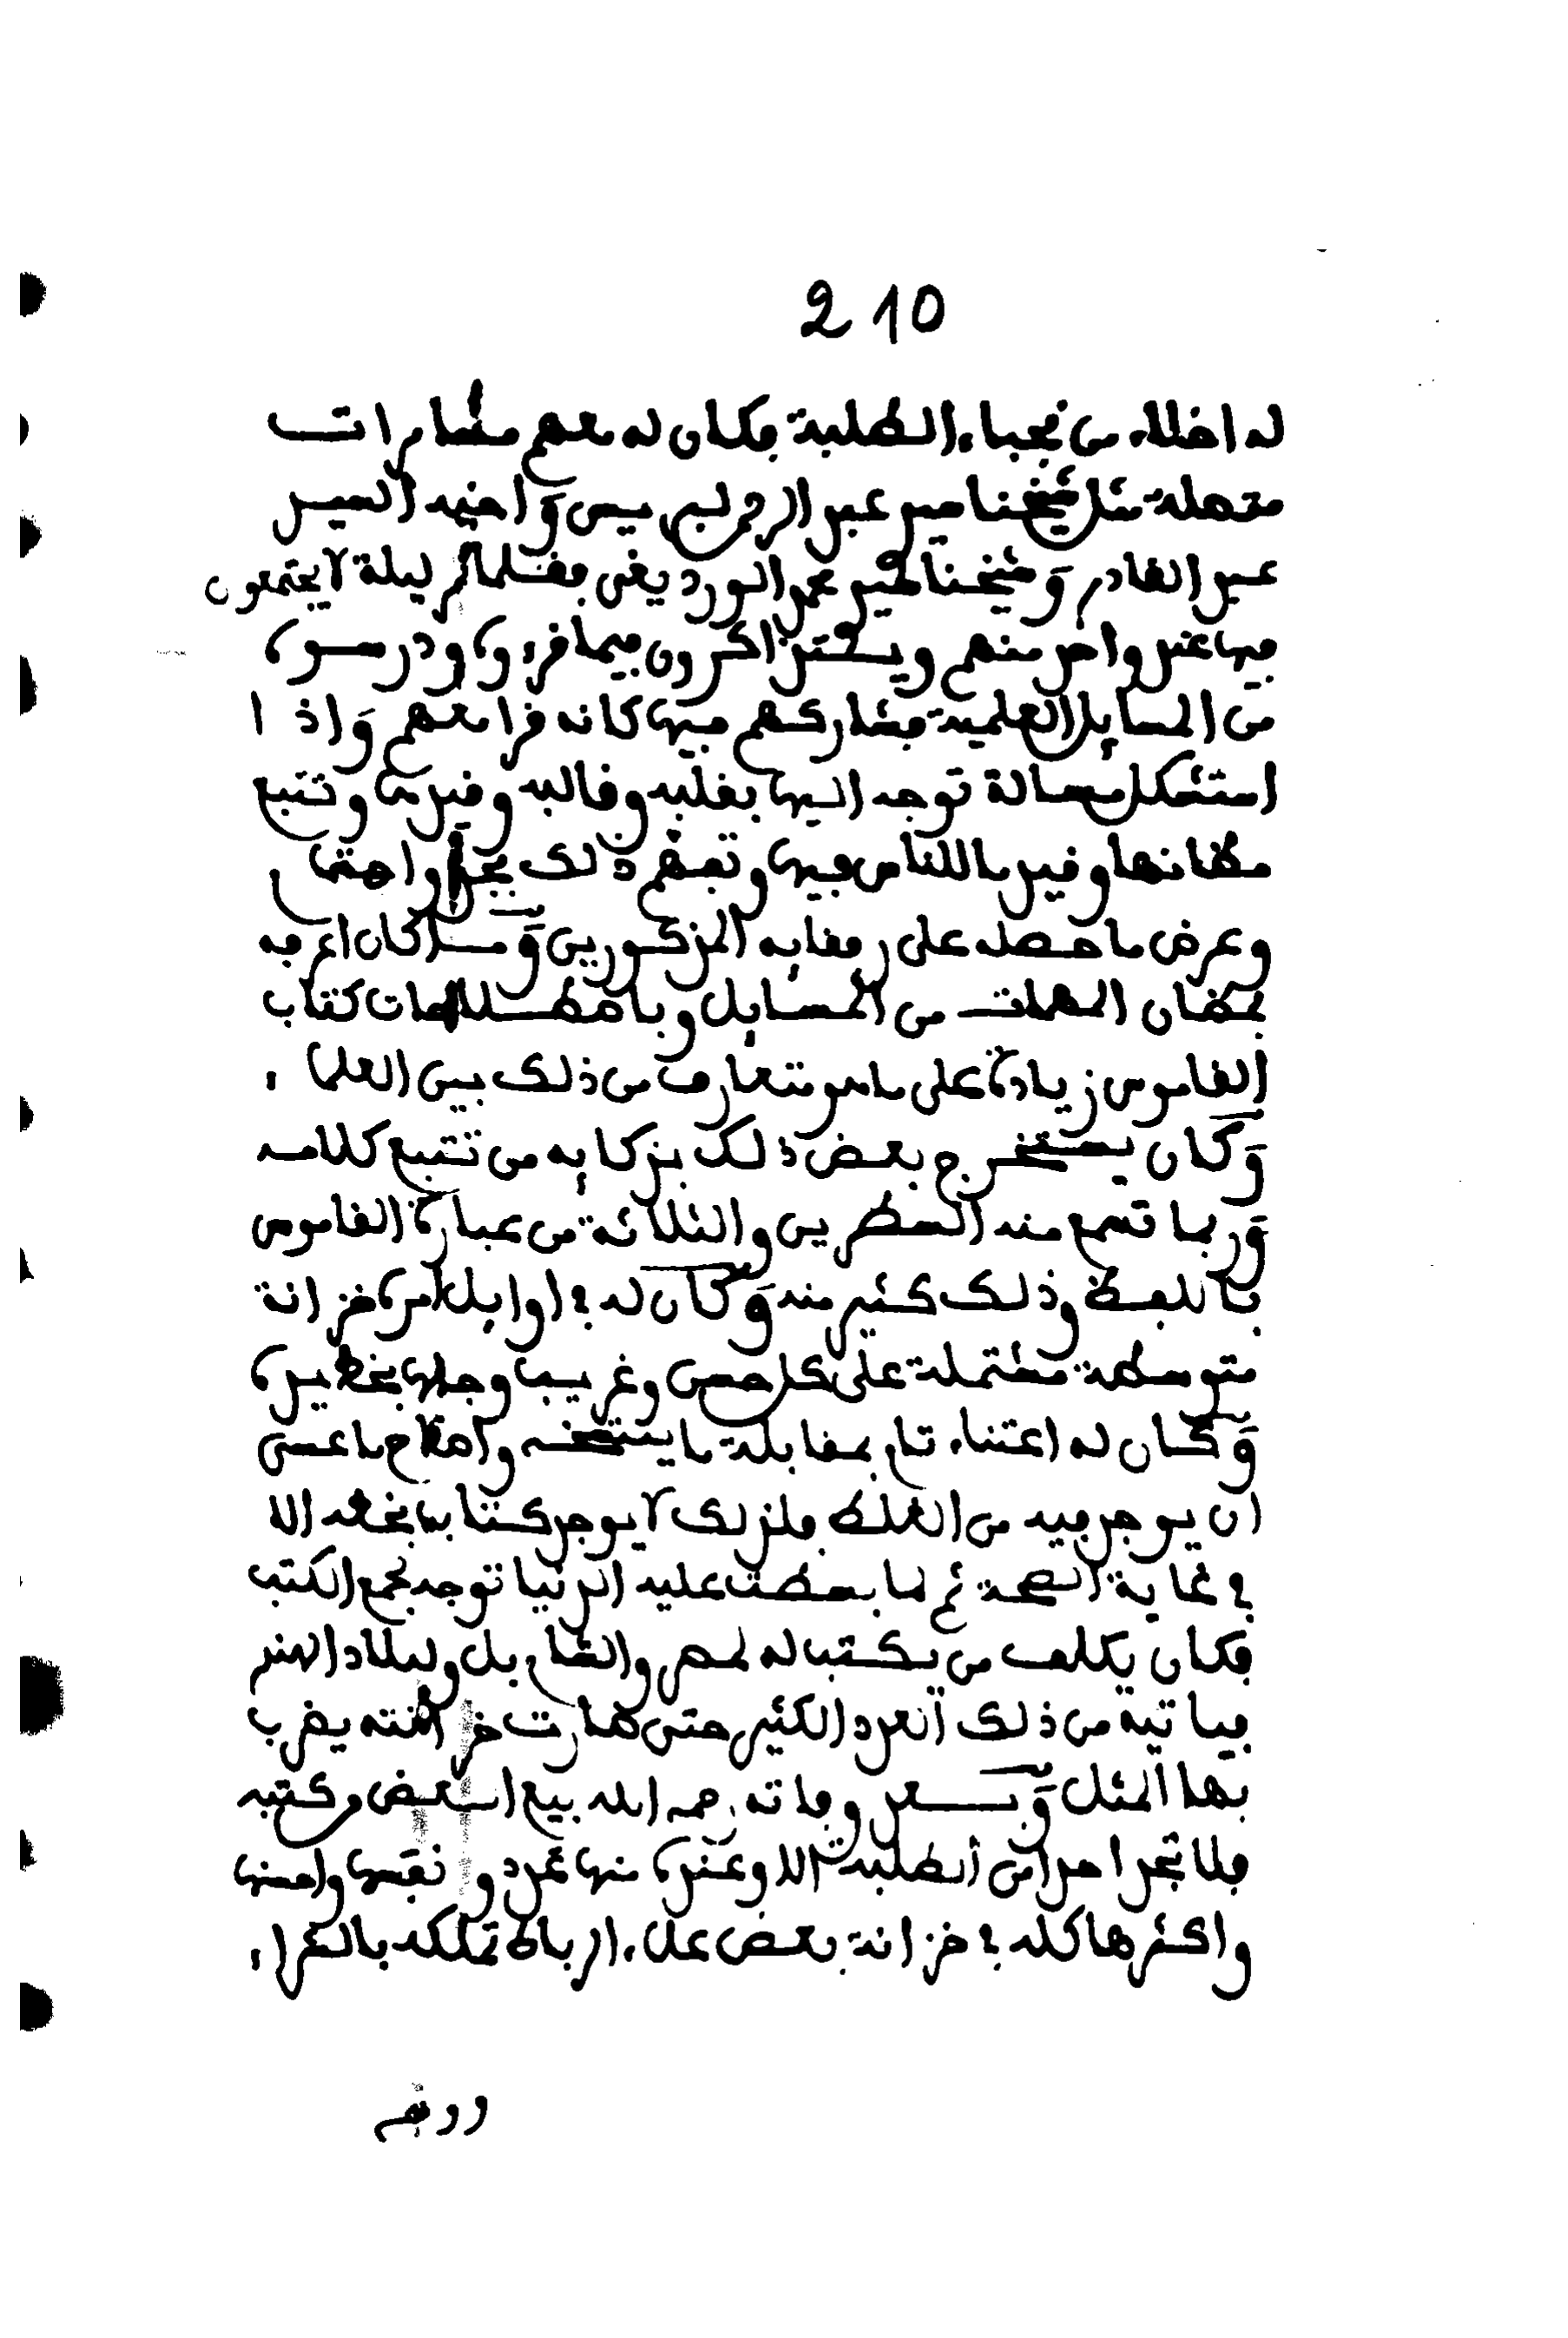 210
له اخلاء من نجباء الطلبة فكان له معهم مشامرات
متصلة مثل شيخنا سيد عبد الرحمن لبريس واخيه السيد
عبد القادر وشيخنا سيد محمد الورديغي فقلما تمر ليلة لا يجتمعون
فيها عند واحد منهم ويتذاكرون فيما قرءوه ودرسوه
من المسايل العلمية فيشاركهم فيها كانه قرا معهم واذا
استشكل مسالة توجه اليها بقلبه وقالبه وقيدها وتتبع
مظانها وقيد ما للناس فيها وتفهم ذلك بجد واهتمام
وعرض ما حصله على رفقايه المذكورين وما كان اعرفه
بمظان المهمات من المسايل وباصطلاحات كتاب
القاموس زيادة على ما هو متعارف من ذلك بين العلماء
وكان يستخرج بعض ذلك بذكايه من تتبع كلامه
وربما تسمع منه السطرين والثلاثة من عبارة القاموس
باللفظ وذلك كثير منه وكان له في اوايل امره خزانة
متوسطة مشتملة على كل حسن وغريب وجلها بخط يده
وكان له اعتناء تام بمقابلة ما ينتسخه واصلاح ما عسى
ان يوجد فيه من الغلط فلذلك لا يوجد كتاب بخطه الا
في غاية الصحة ثم لما بسطت عليه الدنيا توجه لجمع الكتب
فكان يكلف من يكتب له لمصر والشام بل ولبلاد الهند
فياتيه من ذلك العدد الكثير حتى صارت خزانته يضرب
بها المثل وبعد وفاته رحمه الله بيع البعض من كتبه
فلا تجد احدا من الطلبة الا وعنده منها عدد ونفيسها واحسنها
واكثرها كله في خزانة بعض علماء الرباط تملكه بالشراء